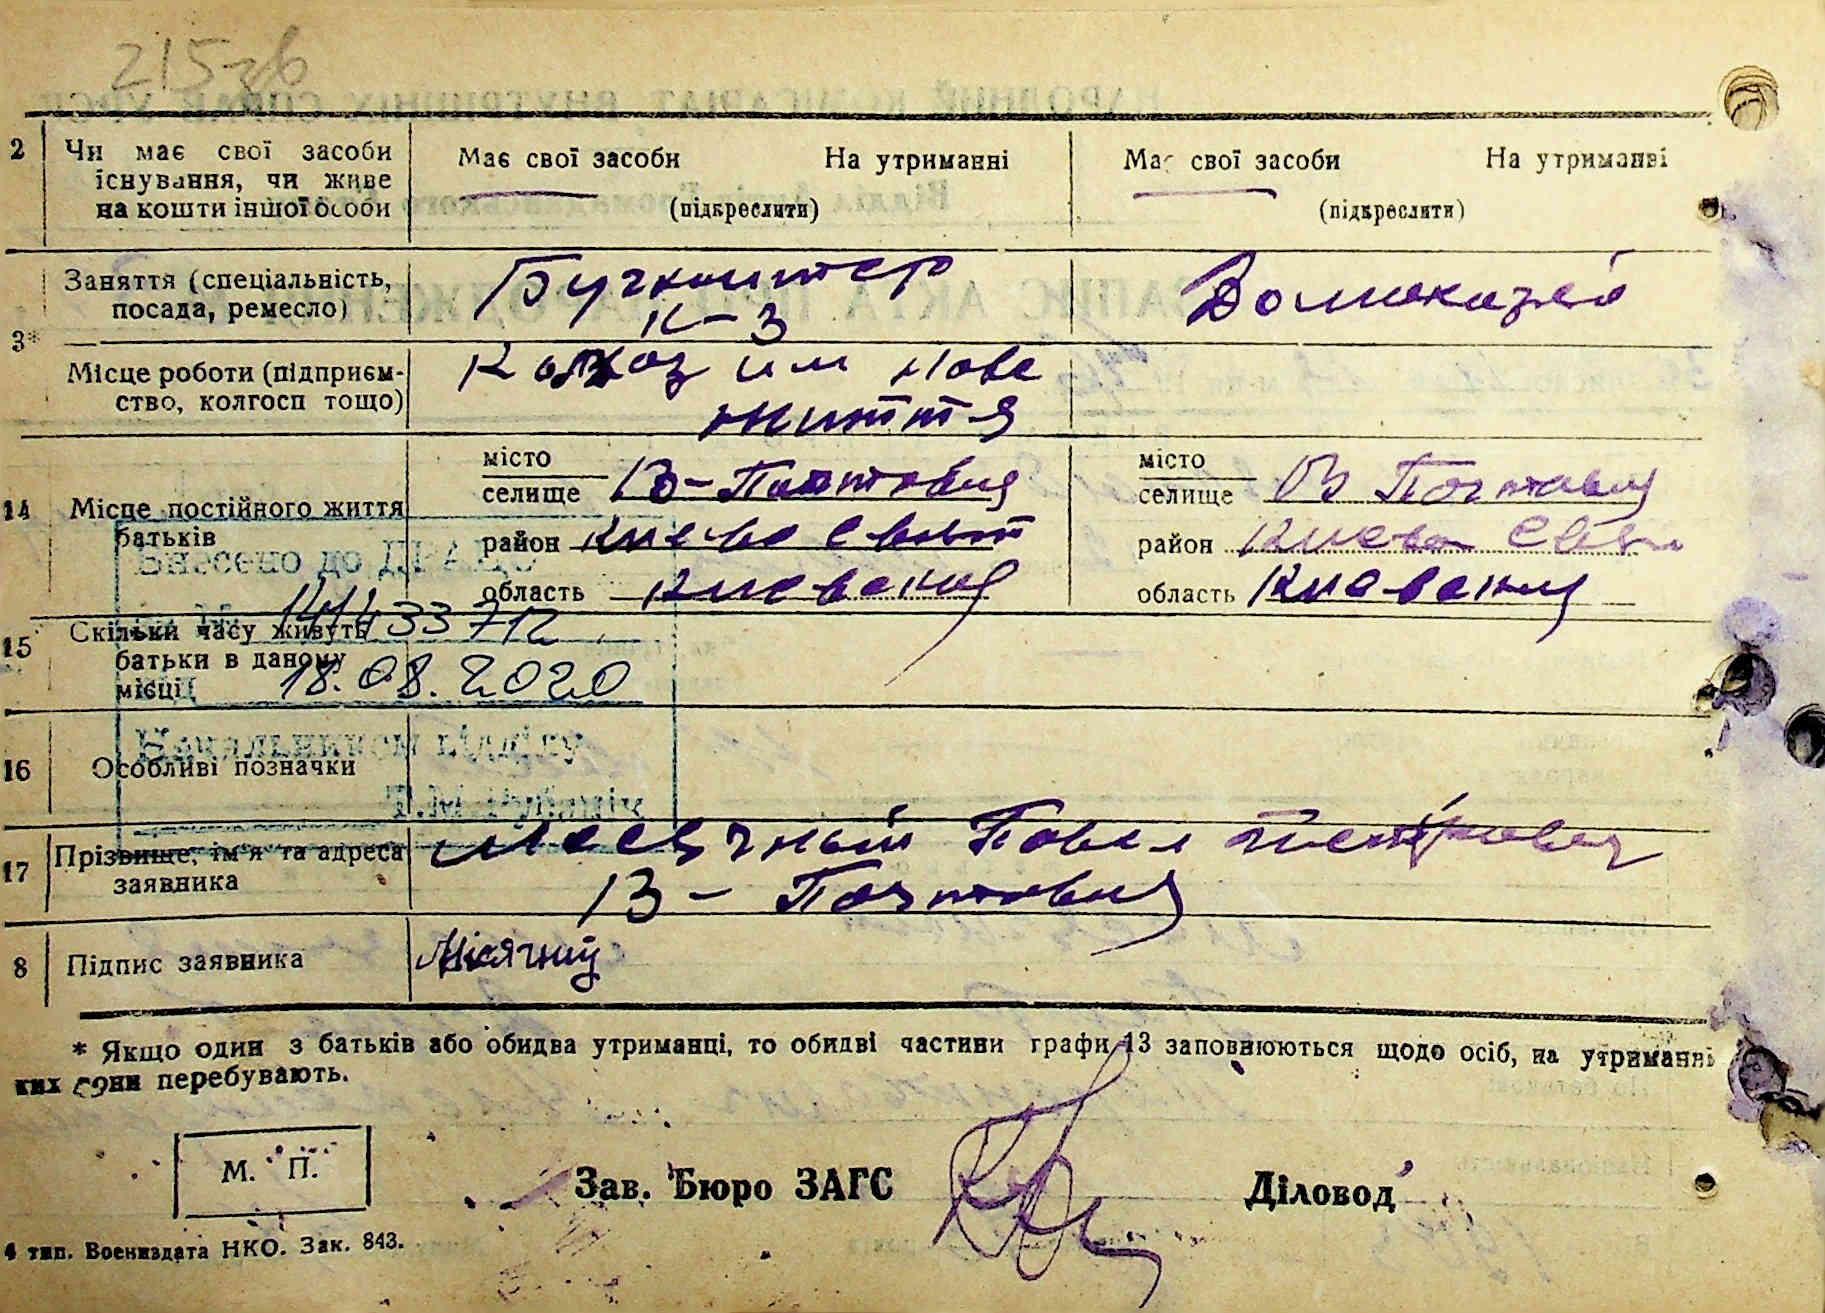 215зв
2 Чи має свої засоби Має свої засоби На утриманні Має свої засоби На утриманні
існування, чи живе
на кошти іншої особи (підкреслити) (підкреслити)
Заняття (спеціальність, Бухгалтер Домохазяй
посада, ремесло) К-З
3*
Місце роботи (підприєм- Колхоз им Нове
ство, колгосп тощо) життя
місто місто
14 Місце постійного життя селище В-Почтовая селище В Почтовая
батьків район Киево Свят район Киево Свят
Внесено до ДРАЦС
область Киевская область Киевская
№ 14433712
15 Скільки часу живуть
батьки в даному
місці 18.08.2020
Начальником відділу
16 Особливі позначки
Т.М.
17 Прізвище, ім'я та адреса Месячный Павел Петрович
заявника В-Почтовая
8 Підпис заявника Місячний
* Якщо один з батьків або обидва утриманці, то обидві частини графи 13 заповнюються щодо осіб, на утриманні
ких вони перебувають.
М. П.
Зав. Бюро ЗАГС Діловод
4 тип. Воениздата НКО. Зак. 843.